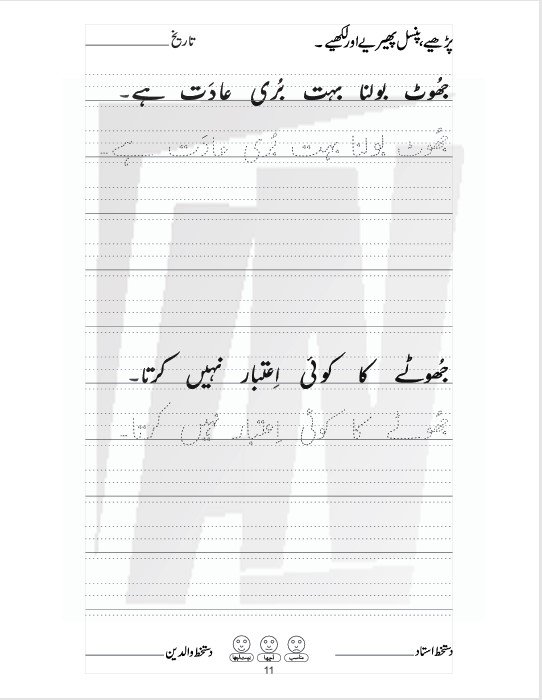 پڑھیے، پنسل پھیریے اور لکھیے ۔ تاریخ
جھُوٹ بولنا بہت بُری عادَت ہے۔
جھُوٹ بولنا بہت بُری عادَت ہے۔
جھُوٹے کا کوئی اِعتبار نہیں کرتا۔
جھُوٹے کا کوئی اِعتبار نہیں کرتا۔
دستخط استاد مناسب اچھا بہت اچھا دستخط والدین
11